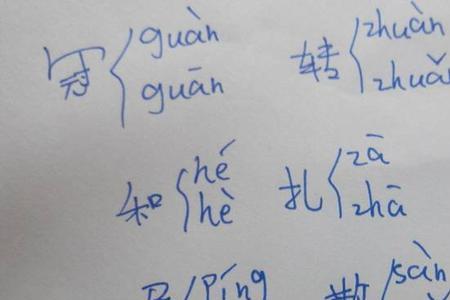 冠 guàn 转 zhuàn
guān zhuǎ
和 hé 扎 zā
hè zhā
píng 散 sàn